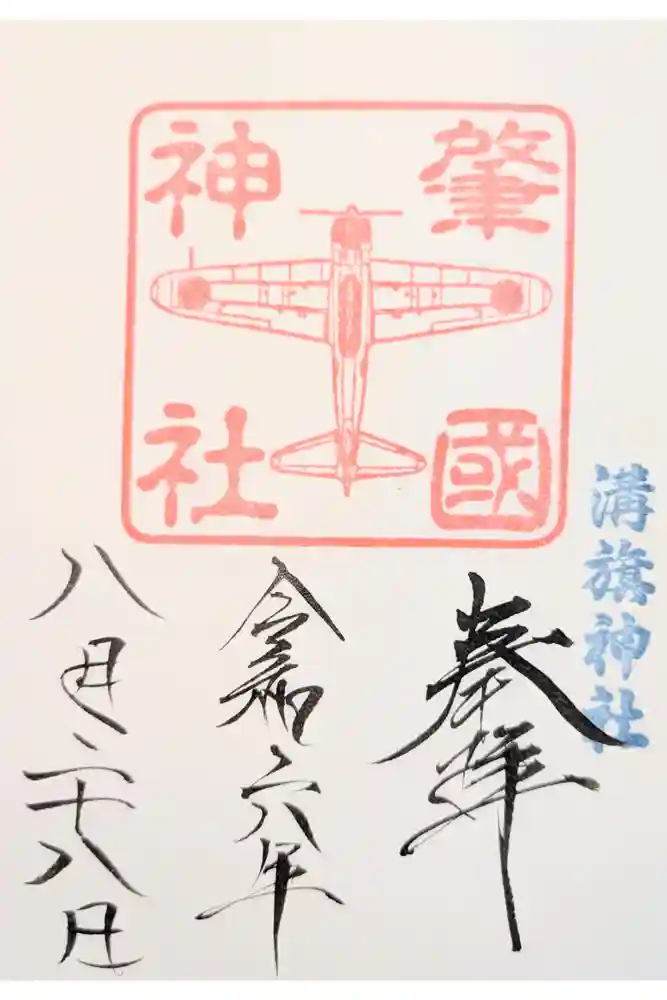 肇國
神社
溝旗神社
奉拝
令和六年
八月二十八日